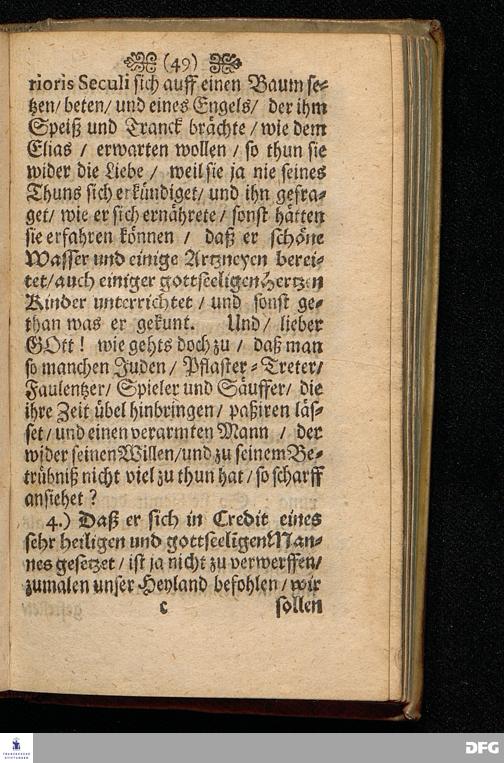 (49)
rioris Seculi sich auff einen Baum se⸗
tzen/ beten/ und eines Engels/ der ihm
Speiß und Tranck brächte/ wie dem
Elias/ erwarten wollen/ so thun sie
wider die Liebe/ weil sie ja nie seines
Thuns sich erkündiget/ und ihn gefra⸗
get/ wie er sich ernährete/ sonst hätten
sie erfahren können/ daß er schöne
Wasser und einige Artzneyen berei⸗
tet/ auch einiger gottseeligen Hertzen
Kinder unterrichtet/ und sonst ge⸗
than was er gekunt. Und/ lieber
GOtt! wie gehts doch zu/ daß man
so manchen Juden/ Pflaster⸗Treter/
Faulentzer/ Spieler und Säuffer/ die
ihre Zeit übel hinbringen/ paßiren läs⸗
set/ und einen verarmten Mann/ der
wider seinen Willen/ und zu seinem Be⸗
trübniß nicht viel zu thun hat/ so scharff
ansiehet?
4.) Daß er sich in Credit eines
sehr heiligen und gottseeligen Man⸗
nes gesetzet/ ist ja nicht zu verwerffen/
zumalen unser Heyland befohlen/ wir
c sollen
FRANCKESCHE
STIFTUNGEN
DFG